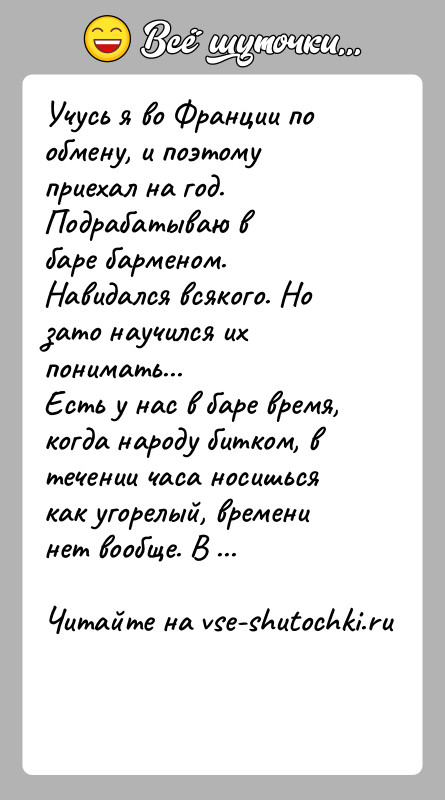 Всё шуточки...
Учусь я во Франции по
обмену, и поэтому
приехал на год.
Подрабатываю в
баре барменом.
Навидался всякого. Но
зато научился их
понимать...
Есть у нас в баре время,
когда народу битком, в
течении часа носишься
как угорелый, времени
нет вообще. В ...
Читайте на vse-shutochki.ru